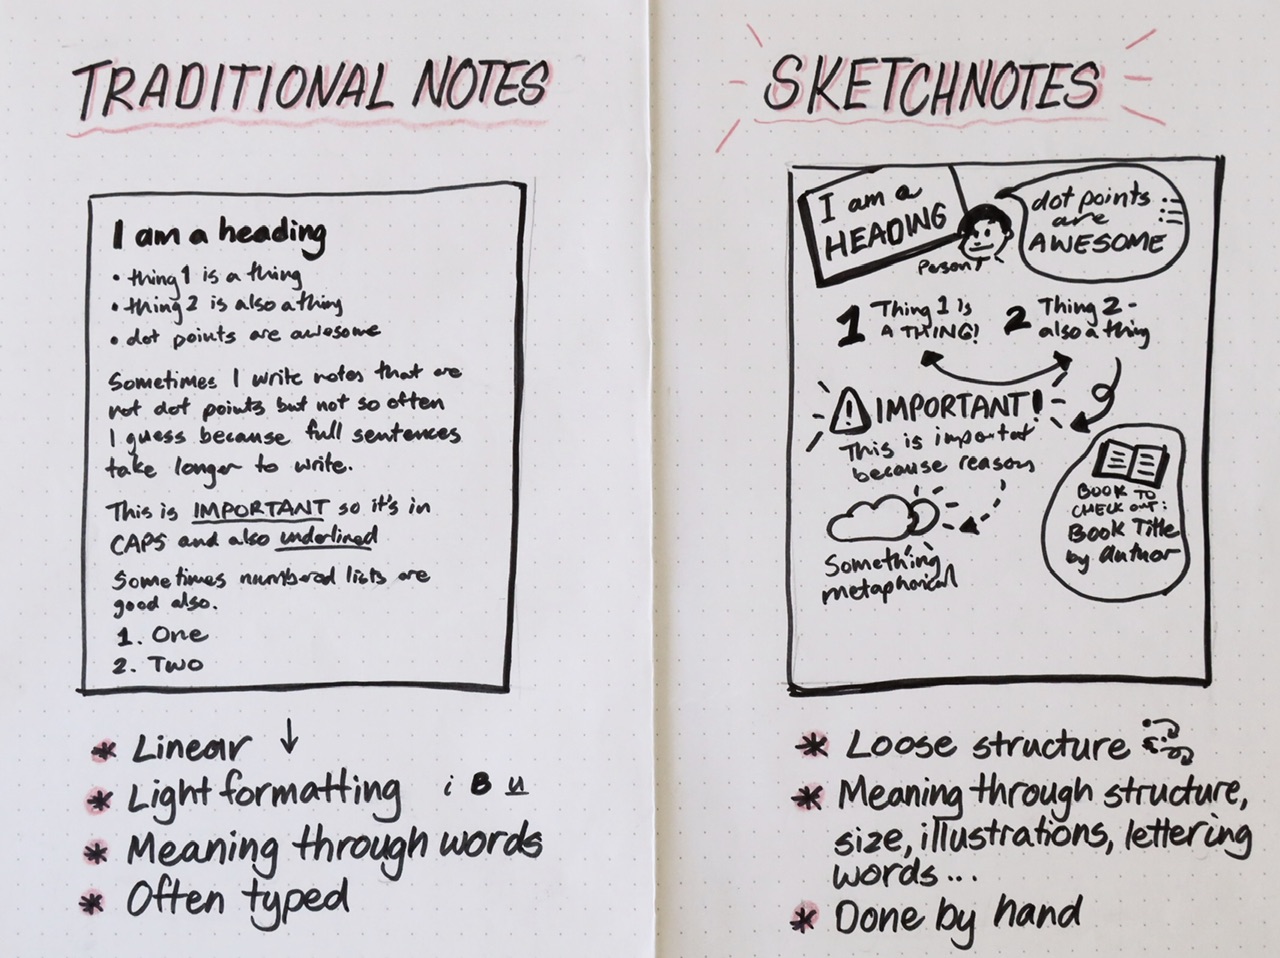 TRADITIONAL NOTES
I am a heading
• thing 1 is a thing
• thing 2 is also a thing
• dot points are awesome
Sometimes I write notes that are
not dot points but not so often
I guess because full sentences
take longer to write.
This is IMPORTANT so it's in
CAPS and also underlined
Sometimes numbered lists are
good also.
1. One
2. Two
* Linear ↓
* Light formatting i B u
* Meaning through words
* Often typed
SKETCHNOTES
I am a
HEADING
Person
dot points
are
AWESOME
1 Thing 1 is
A THING!
2 Thing 2 -
also a thing
! IMPORTANT!
This is important
because reason
Something
metaphorical
BOOK TO
CHECK OUT:
Book Title
by author
* Loose structure
* Meaning through structure,
size, illustrations, lettering
words...
* Done by hand